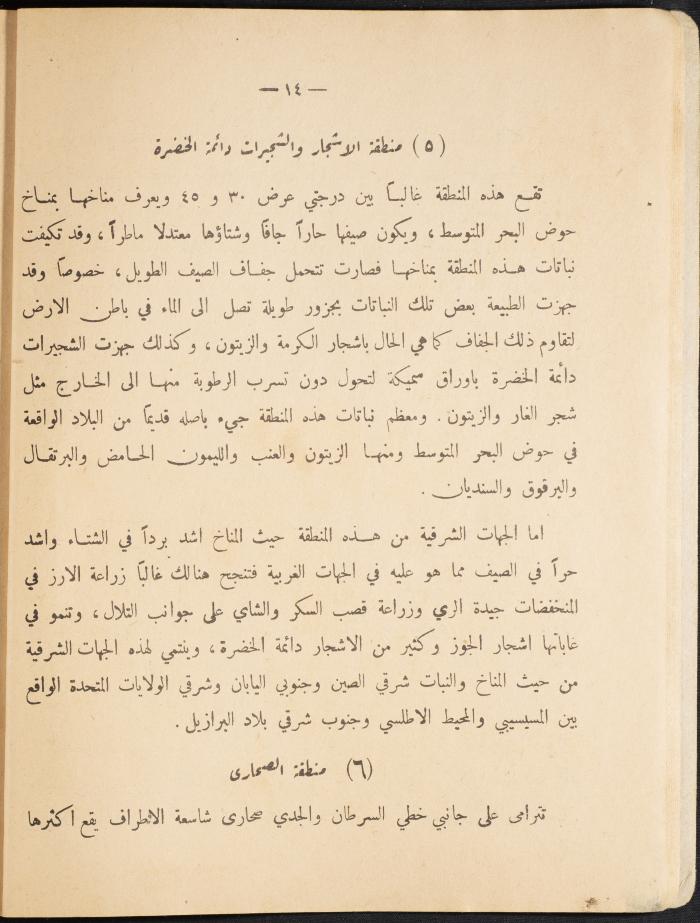 — ١٤ —
(٥) منطقة الاشجار والشجيرات دائمة الخضرة
تقع هذه المنطقة غالباً بين درجتي عرض ٣٠ و ٤٥ ويعرف مناخها بمناخ
حوض البحر المتوسط ، ويكون صيفها حاراً جافاً وشتاؤها معتدلا ماطراً ، وقد تكيفت
نباتات هذه المنطقة بمناخها فصارت تتحمل جفاف الصيف الطويل ، خصوصاً وقد
جهزت الطبيعة بعض تلك النباتات بجزور طويلة تصل الى الماء في باطن الارض
لتقاوم ذلك الجفاف كما هي الحال باشجار الكرمة والزيتون ، وكذلك جهزت الشجيرات
دائمة الخضرة باوراق سميكة لتحول دون تسرب الرطوبة منها الى الخارج مثل
شجر الغار والزيتون . ومعظم نباتات هذه المنطقة جيء باصله قديماً من البلاد الواقعة
في حوض البحر المتوسط ومنها الزيتون والعنب والليمون الحامض والبرتقال
والبرقوق والسنديان .
اما الجهات الشرقية من هذه المنطقة حيث المناخ اشد برداً في الشتاء واشد
حراً في الصيف مما هو عليه في الجهات الغربية فتنجح هنالك غالباً زراعة الارز في
المنخفضات جيدة الري وزراعة قصب السكر والشاي على جوانب التلال ، وتنمو في
غاباتها اشجار الجوز وكثير من الاشجار دائمة الخضرة ، وينتمي لهذه الجهات الشرقية
من حيث المناخ والنبات شرقي الصين وجنوبي اليابان وشرقي الولايات المتحدة الواقع
بين المسيسيبي والمحيط الاطلسي وجنوب شرقي بلاد البرازيل .
(٦) منطقة الصحارى
تترامى على جانبي خطي السرطان والجدي صحارى شاسعة الاطراف يقع اكثرها